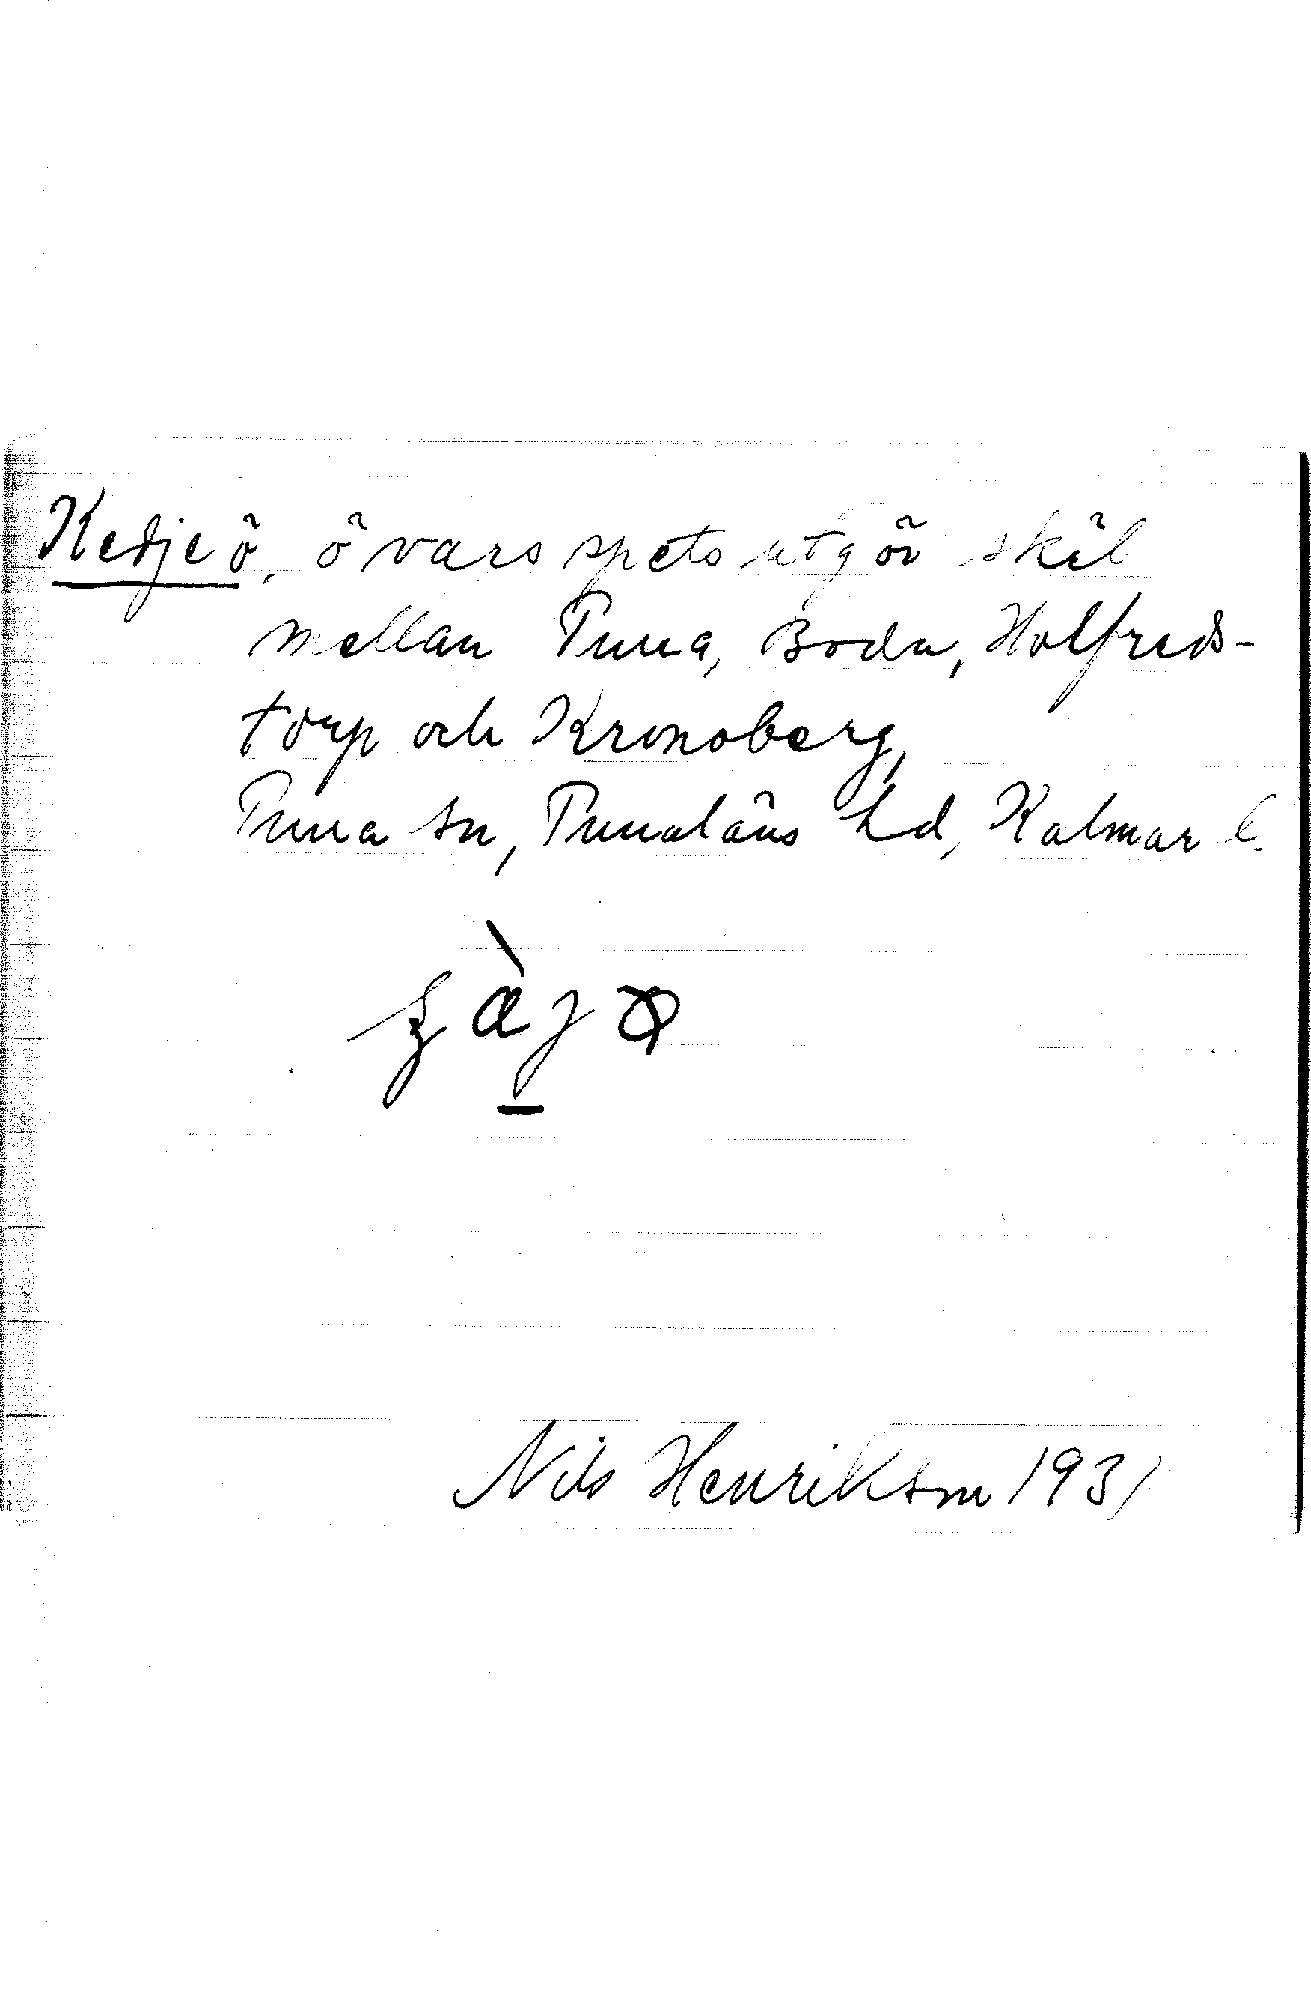 Kedjeö, ö vars spets utgör skäl
mellan Tuna, Boda, Holfreds-
torp och Kronoberg,
Tuna sn, Tunaläns hd, Kalmar l.
Nils Henrikson 1931